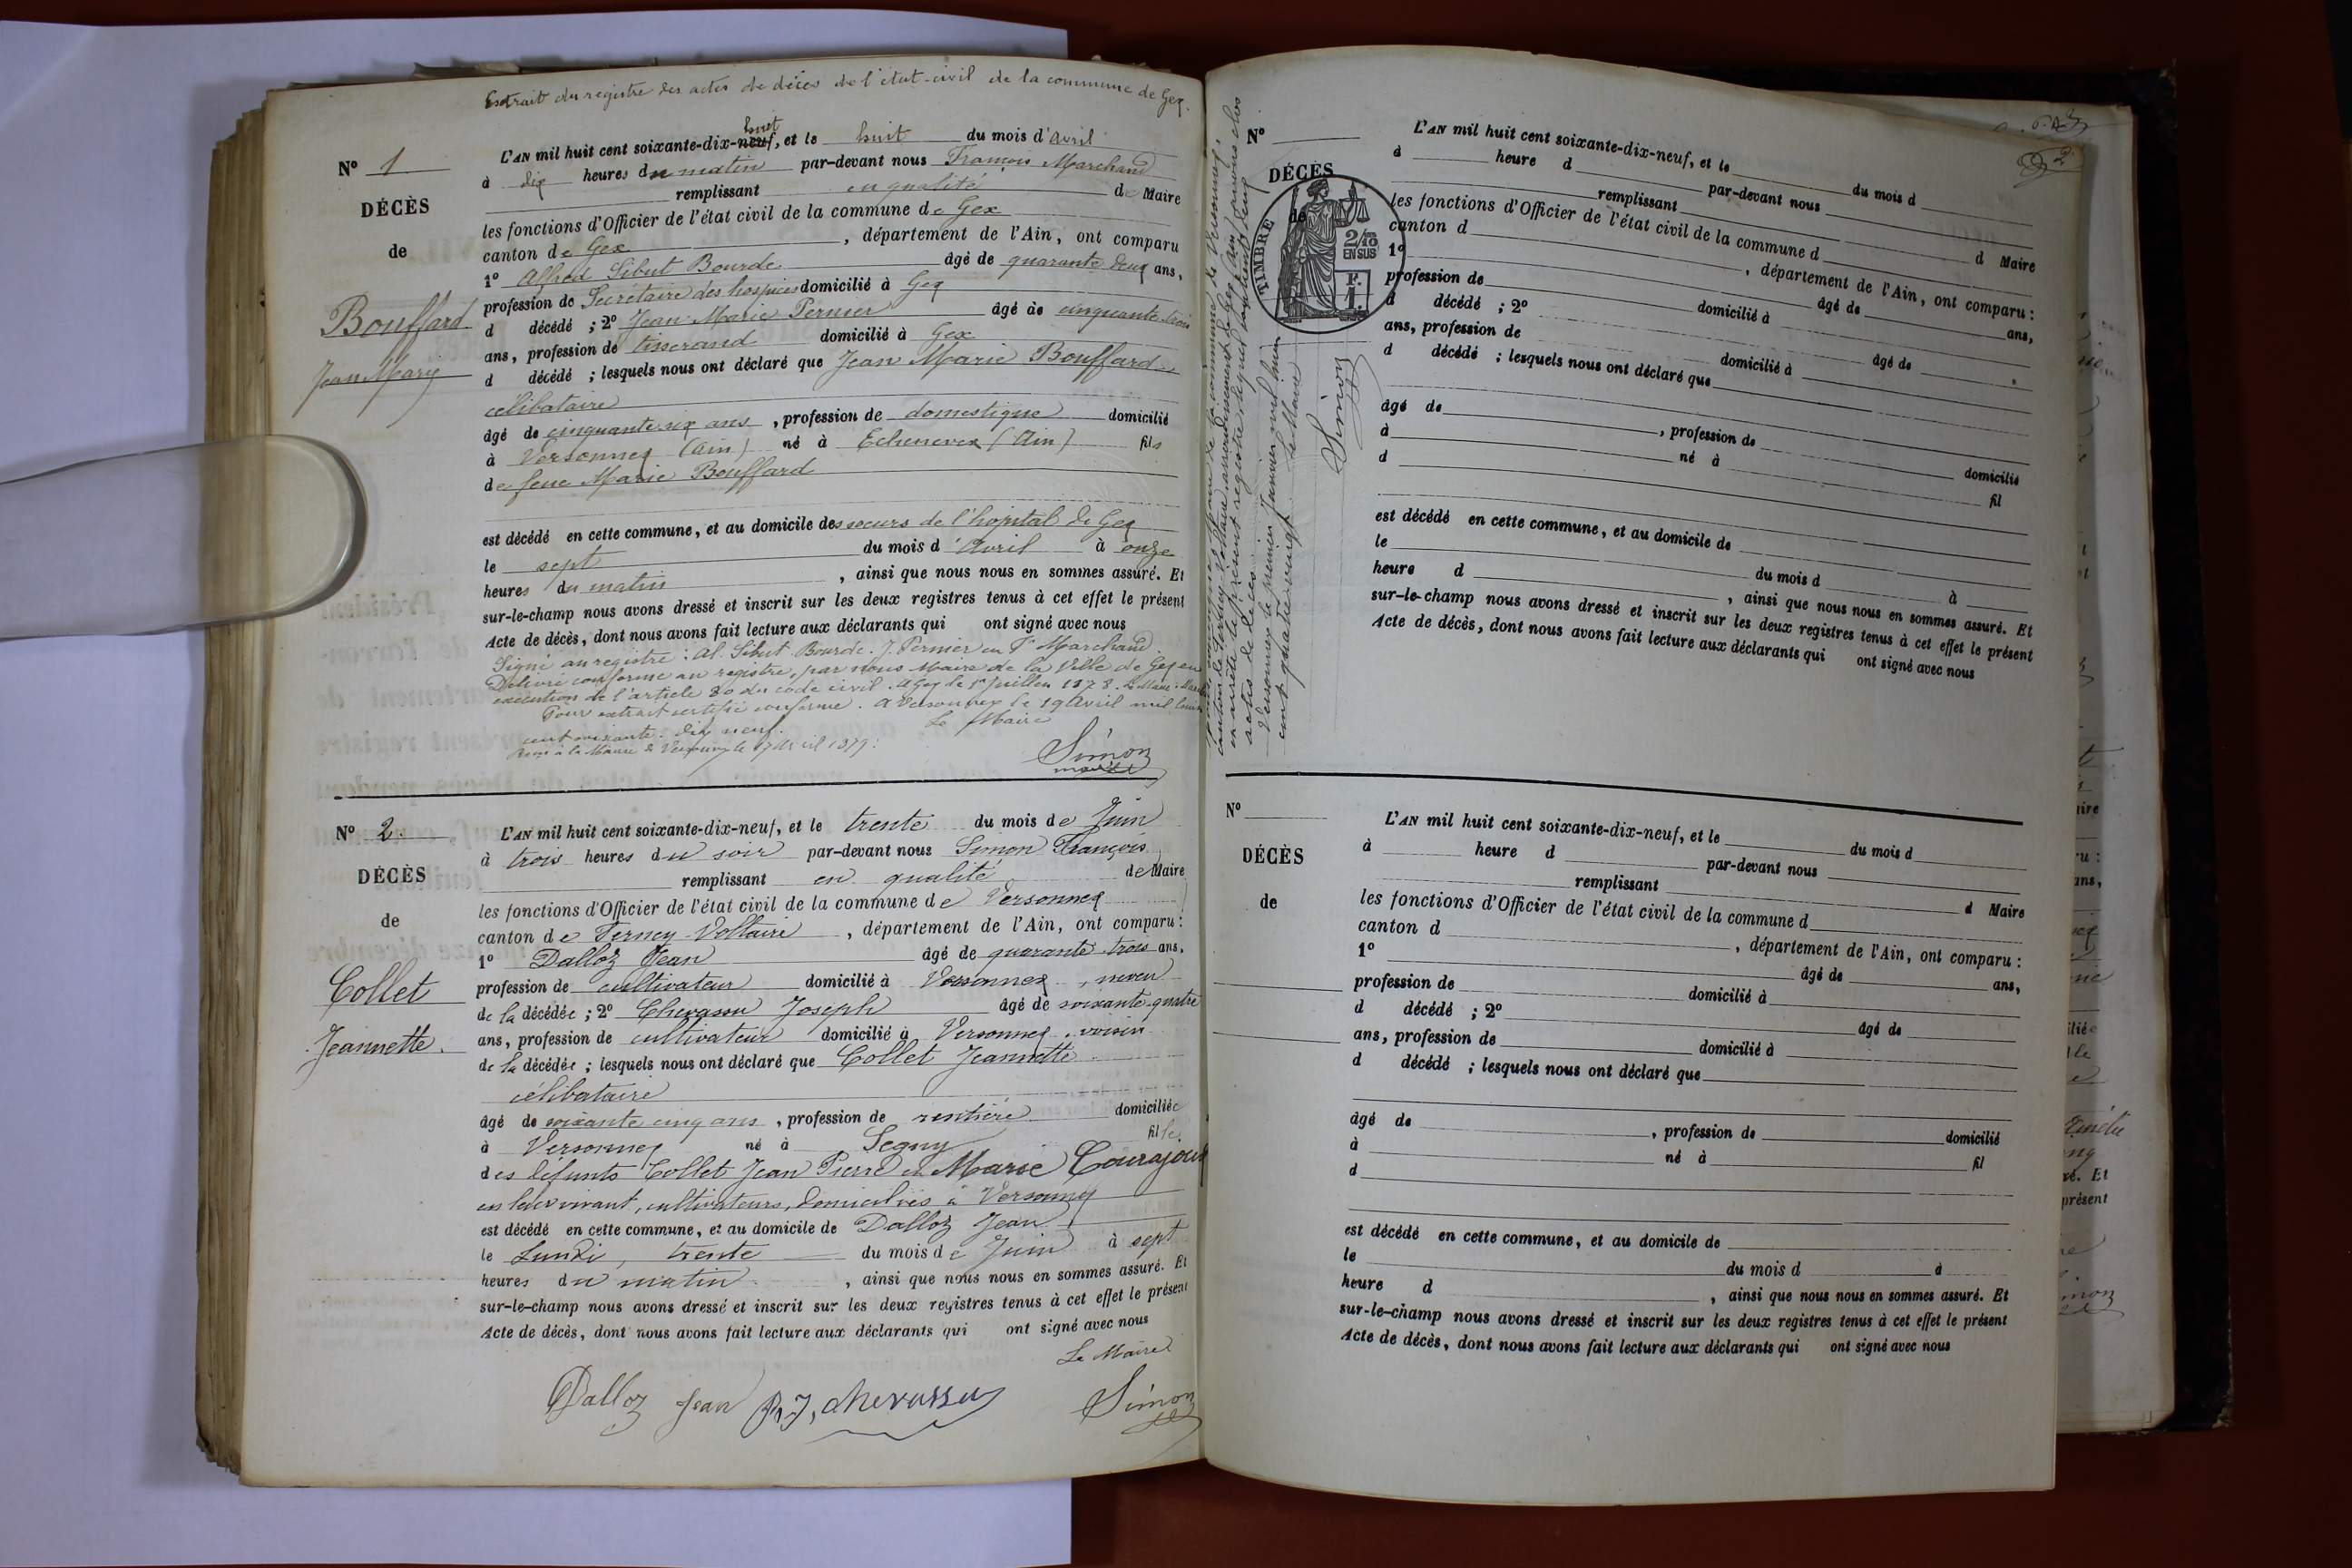 Extrait du registre des actes de décès de l'état-civil de la commune de Gex.
N° 1
DÉCÈS
de
Bouffard
Jean Marie
huit
L'AN mil huit cent soixante-dix-neuf, et le huit du mois d'avril
à dix heures du matin par-devant nous François Marchand
remplissant en qualité de Maire
les fonctions d'Officier de l'état civil de la commune de Gex
canton de Gex , département de l'Ain, ont comparu
1° Alfred Sibut Bourde âgé de quarante deux ans,
profession de Secrétaire des hospices domicilié à Gex
d décédé ; 2° Jean Marie Pernier âgé de cinquante trois
ans, profession de tisserand domicilié à Gex
d décédé ; lesquels nous ont déclaré que Jean Marie Bouffard
célibataire
âgé de cinquante six ans , profession de domestique domicilié
à Versonnex (Ain) né à Echenevex (Ain) fils
de feue Marie Bouffard
est décédé en cette commune, et au domicile des sœurs de l'hôpital de Gex
le sept du mois d'Avril à onze
heures du matin , ainsi que nous nous en sommes assuré. Et
sur-le-champ nous avons dressé et inscrit sur les deux registres tenus à cet effet le présent
Acte de décès, dont nous avons fait lecture aux déclarants qui ont signé avec nous
Signé au registre : Al. Sibut Bourde. J. Pernier et Fs Marchand.
Délivré conforme au registre, par nous Maire de la Ville de Gex en
exécution de l'article 80 du code civil. A Gex le 1er Juillet 1878. Le Maire
Pour extrait certifié conforme. A Versonnex le 19 Avril mil huit
cent soixante-dix neuf. Le Maire
à la Mairie de Versonnex le 17 Avril 1879.
Simon
N° 2.
DÉCÈS
de
Collet
Jeannette.
L'AN mil huit cent soixante-dix-neuf, et le trente du mois de Juin
à trois heures du soir par-devant nous Simon François
remplissant en qualité de Maire
les fonctions d'Officier de l'état civil de la commune de Versonnex
canton de Ferney-Voltaire , département de l'Ain, ont comparu :
1° Dalloz Jean âgé de quarante trois ans,
profession de cultivateur domicilié à Versonnex , neveu
de la décédée ; 2° Chevassu Joseph âgé de soixante quatre
ans, profession de cultivateur domicilié à Versonnex , voisin
de la décédée ; lesquels nous ont déclaré que Collet Jeannette
célibataire
âgé de soixante cinq ans , profession de rentière domiciliée
à Versonnex né à Segny fille
des défunts Collet Jean Pierre et Marie Courajoud
en leur vivant, cultivateurs, domiciliés à Versonnex
est décédé en cette commune, et au domicile de Dalloz Jean
le Lundi, trente du mois de Juin à sept
heures du matin , ainsi que nous nous en sommes assuré. Et
sur-le-champ nous avons dressé et inscrit sur les deux registres tenus à cet effet le présent
Acte de décès, dont nous avons fait lecture aux déclarants qui ont signé avec nous
Le Maire
Dalloz Jean J, chevassu Simon
2
N°
DÉCÈS
de
TIMBRE
2/10
EN SUS
F.
1.
canton de Ferney-Voltaire, arrondissement de Gex (Ain) avons clos
et arrêté le présent registre
actes de décès
Versonnex le premier Janvier mil huit
cent quatre-vingt Le Maire
Simon
L'AN mil huit cent soixante-dix-neuf, et le du mois d
à heure d par-devant nous
remplissant d Maire
les fonctions d'Officier de l'état civil de la commune d
canton d , département de l'Ain, ont comparu :
1° âgé de ans,
profession de domicilié à
d décédé ; 2° âgé de
ans, profession de domicilié à
d décédé ; lesquels nous ont déclaré que
âgé de , profession de domicilié
à né à fil
d
est décédé en cette commune, et au domicile de
le du mois d à
heure d , ainsi que nous nous en sommes assuré. Et
sur-le-champ nous avons dressé et inscrit sur les deux registres tenus à cet effet le présent
Acte de décès, dont nous avons fait lecture aux déclarants qui ont signé avec nous
N°
DÉCÈS
de
L'AN mil huit cent soixante-dix-neuf, et le du mois d
à heure d par-devant nous
remplissant d Maire
les fonctions d'Officier de l'état civil de la commune d
canton d , département de l'Ain, ont comparu :
1° âgé de ans,
profession de domicilié à
d décédé ; 2° âgé de
ans, profession de domicilié à
d décédé ; lesquels nous ont déclaré que
âgé de , profession de domicilié
à né à fil
d
est décédé en cette commune, et au domicile de
le du mois d à
heure d , ainsi que nous nous en sommes assuré. Et
sur-le-champ nous avons dressé et inscrit sur les deux registres tenus à cet effet le présent
Acte de décès, dont nous avons fait lecture aux déclarants qui ont signé avec nous